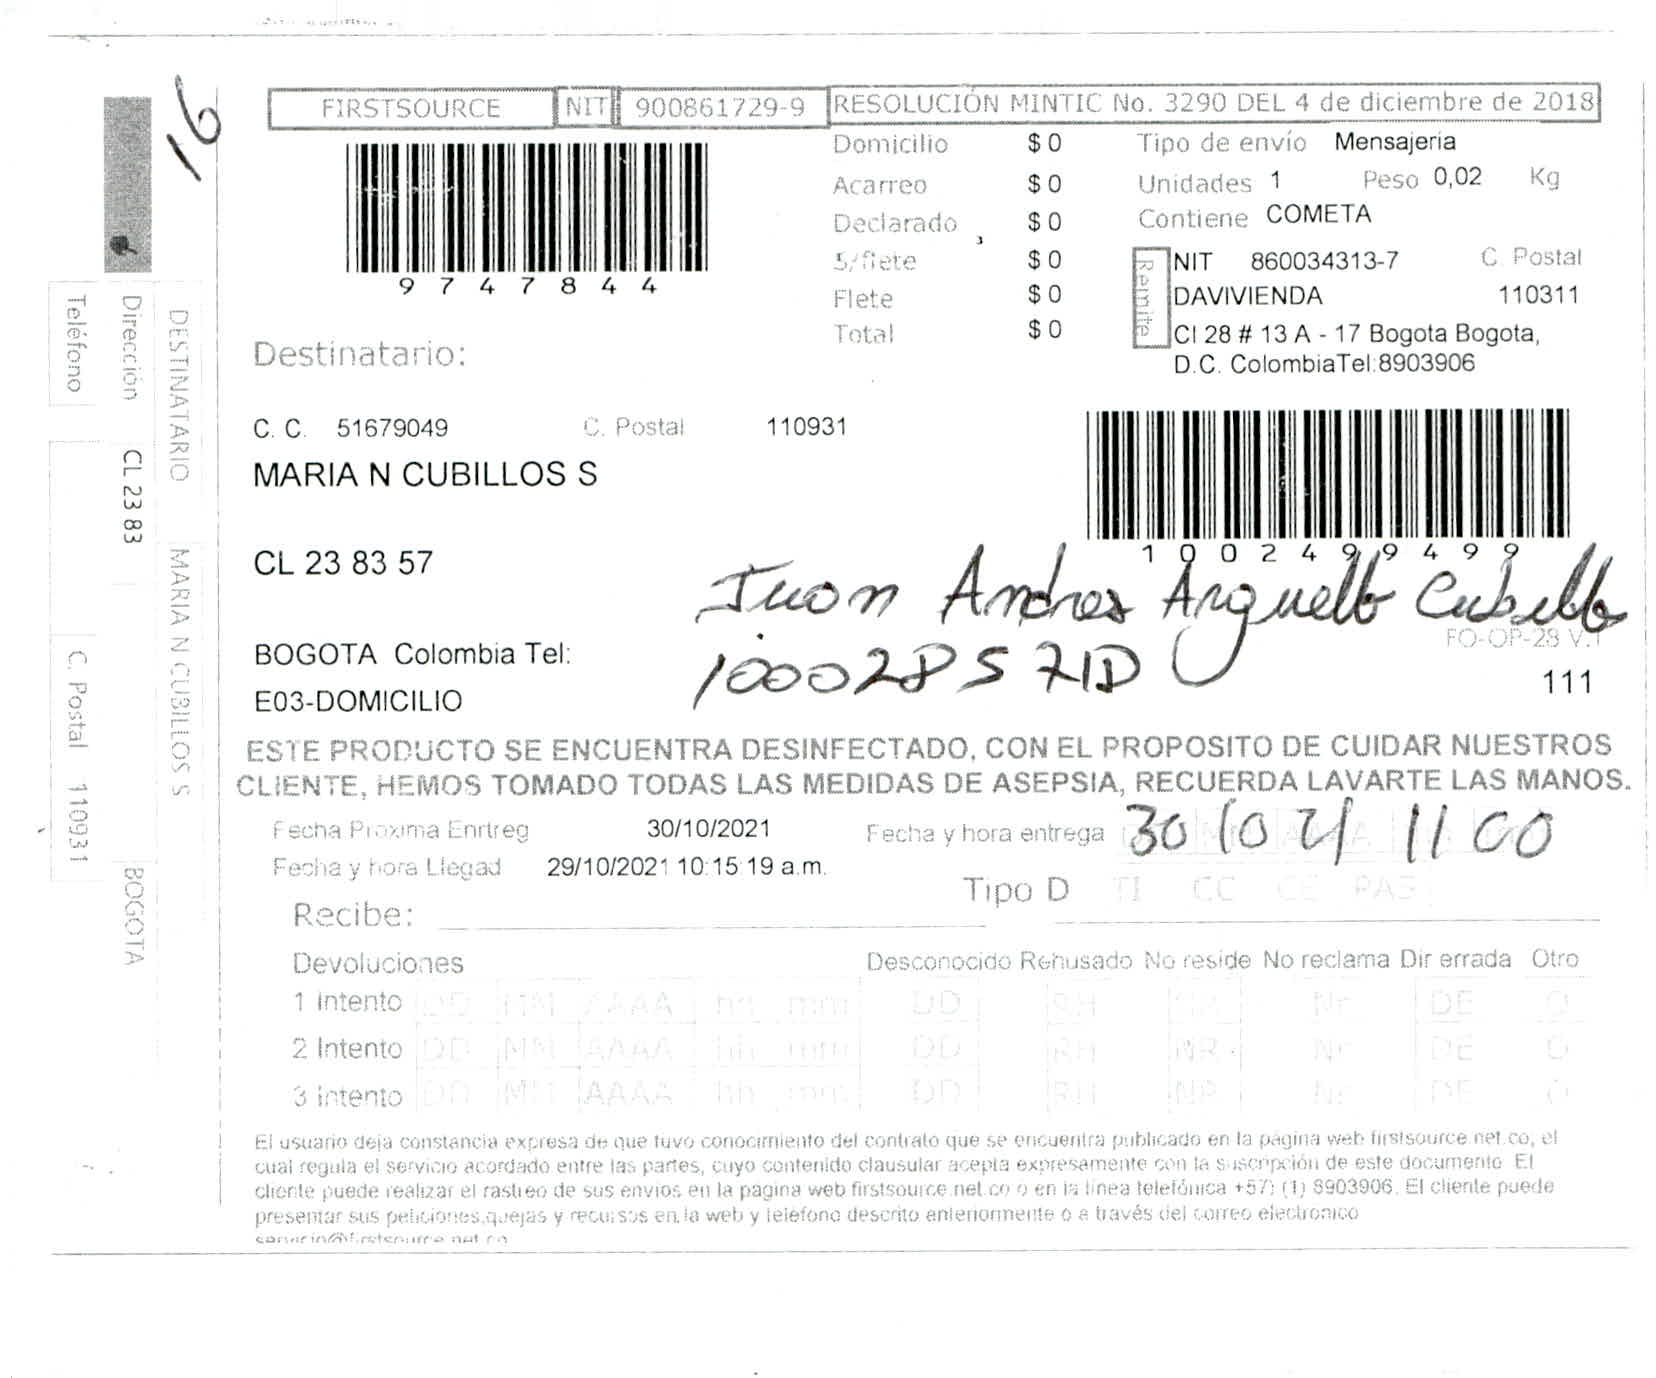 16
FIRSTSOURCE NIT 900861729-9 RESOLUCIÓN MINTIC No. 3290 DEL 4 de diciembre de 2018
97478444
Domicilio $ 0
Acarreo $ 0
Declarado $ 0
S/flete $ 0
Flete $ 0
Total $ 0
Tipo de envío Mensajeria
Unidades 1 Peso 0,02 Kg
Contiene COMETA
Remite
NIT 860034313-7 C. Postal
DAVIVIENDA 110311
Cl 28 # 13 A - 17 Bogota Bogota,
D.C. ColombiaTel:8903906
Destinatario:
C. C. 51679049 C. Postal 110931
MARIA N CUBILLOS S
1002499499
CL 23 83 57
Juan Andres Arguello Cubillos
FO-OP-28 V.1
BOGOTA Colombia Tel:
111
E03-DOMICILIO
ESTE PRODUCTO SE ENCUENTRA DESINFECTADO, CON EL PROPOSITO DE CUIDAR NUESTROS
CLIENTE, HEMOS TOMADO TODAS LAS MEDIDAS DE ASEPSIA, RECUERDA LAVARTE LAS MANOS.
Fecha Proxima Enrtreg 30/10/2021 Fecha y hora entrega 30 10 21 11 00
Fecha y hora Llegad 29/10/2021 10:15:19 a.m.
Tipo D TI CC CE PAS
Recibe:
Devoluciones Desconocido Rehusado No reside No reclama Dir errada Otro
1 Intento DD MM AAAA hh mm DD RH NR Nr DE O
2 Intento DD MM AAAA hh mm DD RH NR Nr DE O
3 Intento DD MM AAAA hh mm DD RH NR Nr DE O
El usuario deja constancia expresa de que tuvo conocimiento del contrato que se encuentra publicado en la pagina web firstsource.net.co, el
cual regula el servicio acordado entre las partes, cuyo contenido clausular acepta expresamente con la suscripción de este documento. El
cliente puede realizar el rastreo de sus envios en la pagina web firstsource.net.co o en la linea telefónica +57) (1) 8903906. El cliente puede
presentar sus peticiones,quejas y recursos en la web y telefono descrito anteriormente o a través del correo electronico
servicio@firstsource.net.co
DESTINATARIO MARIA N CUBILLOS S
Dirección CL 23 83 BOGOTA
Teléfono C. Postal 110931